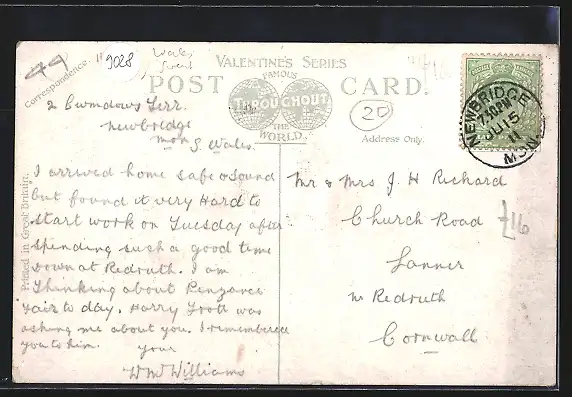 49
9028
Wales
VALENTINE'S SERIES
FAMOUS
THROUGHOUT
THE
WORLD.
POST CARD.
Correspondence.
20
Address Only.
£16
NEWBRIDGE
7.30PM
JU 15
11
MON
2 Cwmdows Terr.
Newbridge
Mon
S. Wales.
I arrived home safe & sound
but found it very Hard to
start work on Tuesday after
spending such a good time
down at Redruth. I am
thinking about Penzance
Fair to day. Harry Trott was
asking me about you. I remembered
you to him.
your
W M Williams
Mr & Mrs J. H Richard
Church Road
Lanner
nr Redruth
Cornwall
£16
Printed in Great Britain.